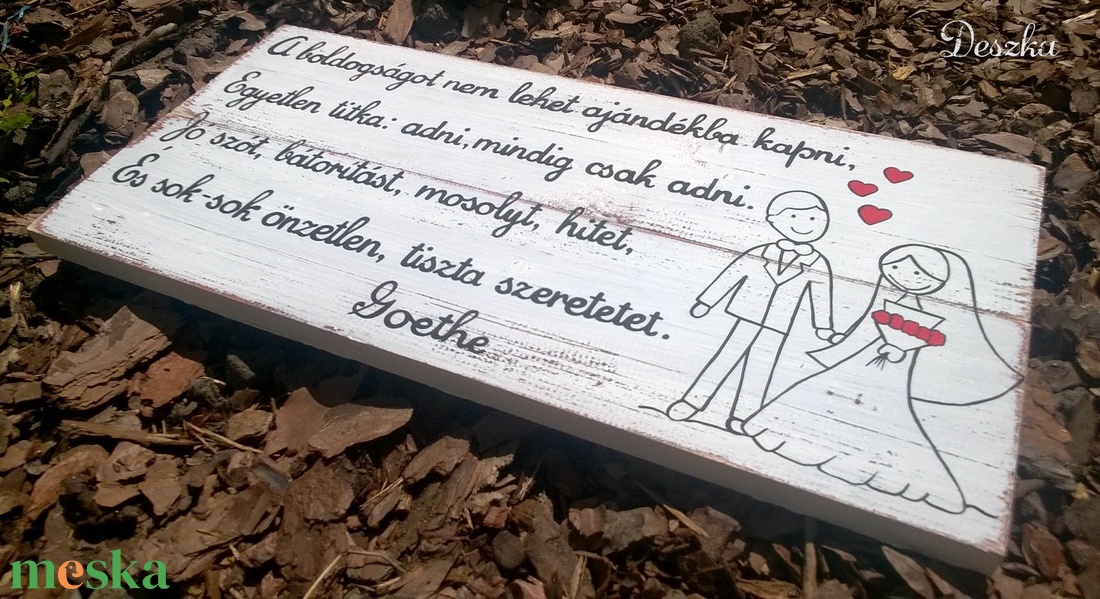 Deszka
A boldogságot nem lehet ajándékba kapni,
Egyetlen titka: adni, mindig csak adni.
Jó szót, bátorítást, mosolyt, hitet,
És sok-sok önzetlen, tiszta szeretetet.
Goethe
meska